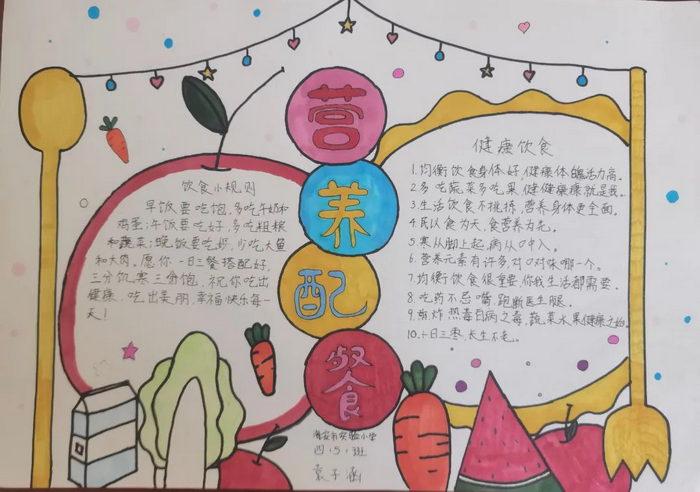 营
养
配
餐
饮食小规则
早饭要吃饱，多吃牛奶和
鸡蛋；午饭要吃好，多吃粗粮
和蔬菜；晚饭要吃好，少吃大鱼
和大肉。愿你一日三餐搭配好，
三分饥寒三分饱，祝你吃出
健康，吃出美丽，幸福快乐每一
天！
健康饮食
1.均衡饮食身体好，健康体魄活力高。
2.多吃蔬菜多吃果，健健康康就是我。
3.生活饮食不挑拣，营养身体更全面。
4.民以食为天，食营养为先。
5.寒从脚上起，病从口中入。
6.营养元素有许多，对口对味哪一个。
7.均衡饮食很重要，你我生活都需要。
8.吃药不忌嘴，跑断医生腿。
9.煎炸热毒百病之毒，蔬菜水果健康之始。
10.一日三枣，长生不老。
实验小学
四·5·班
袁子涵